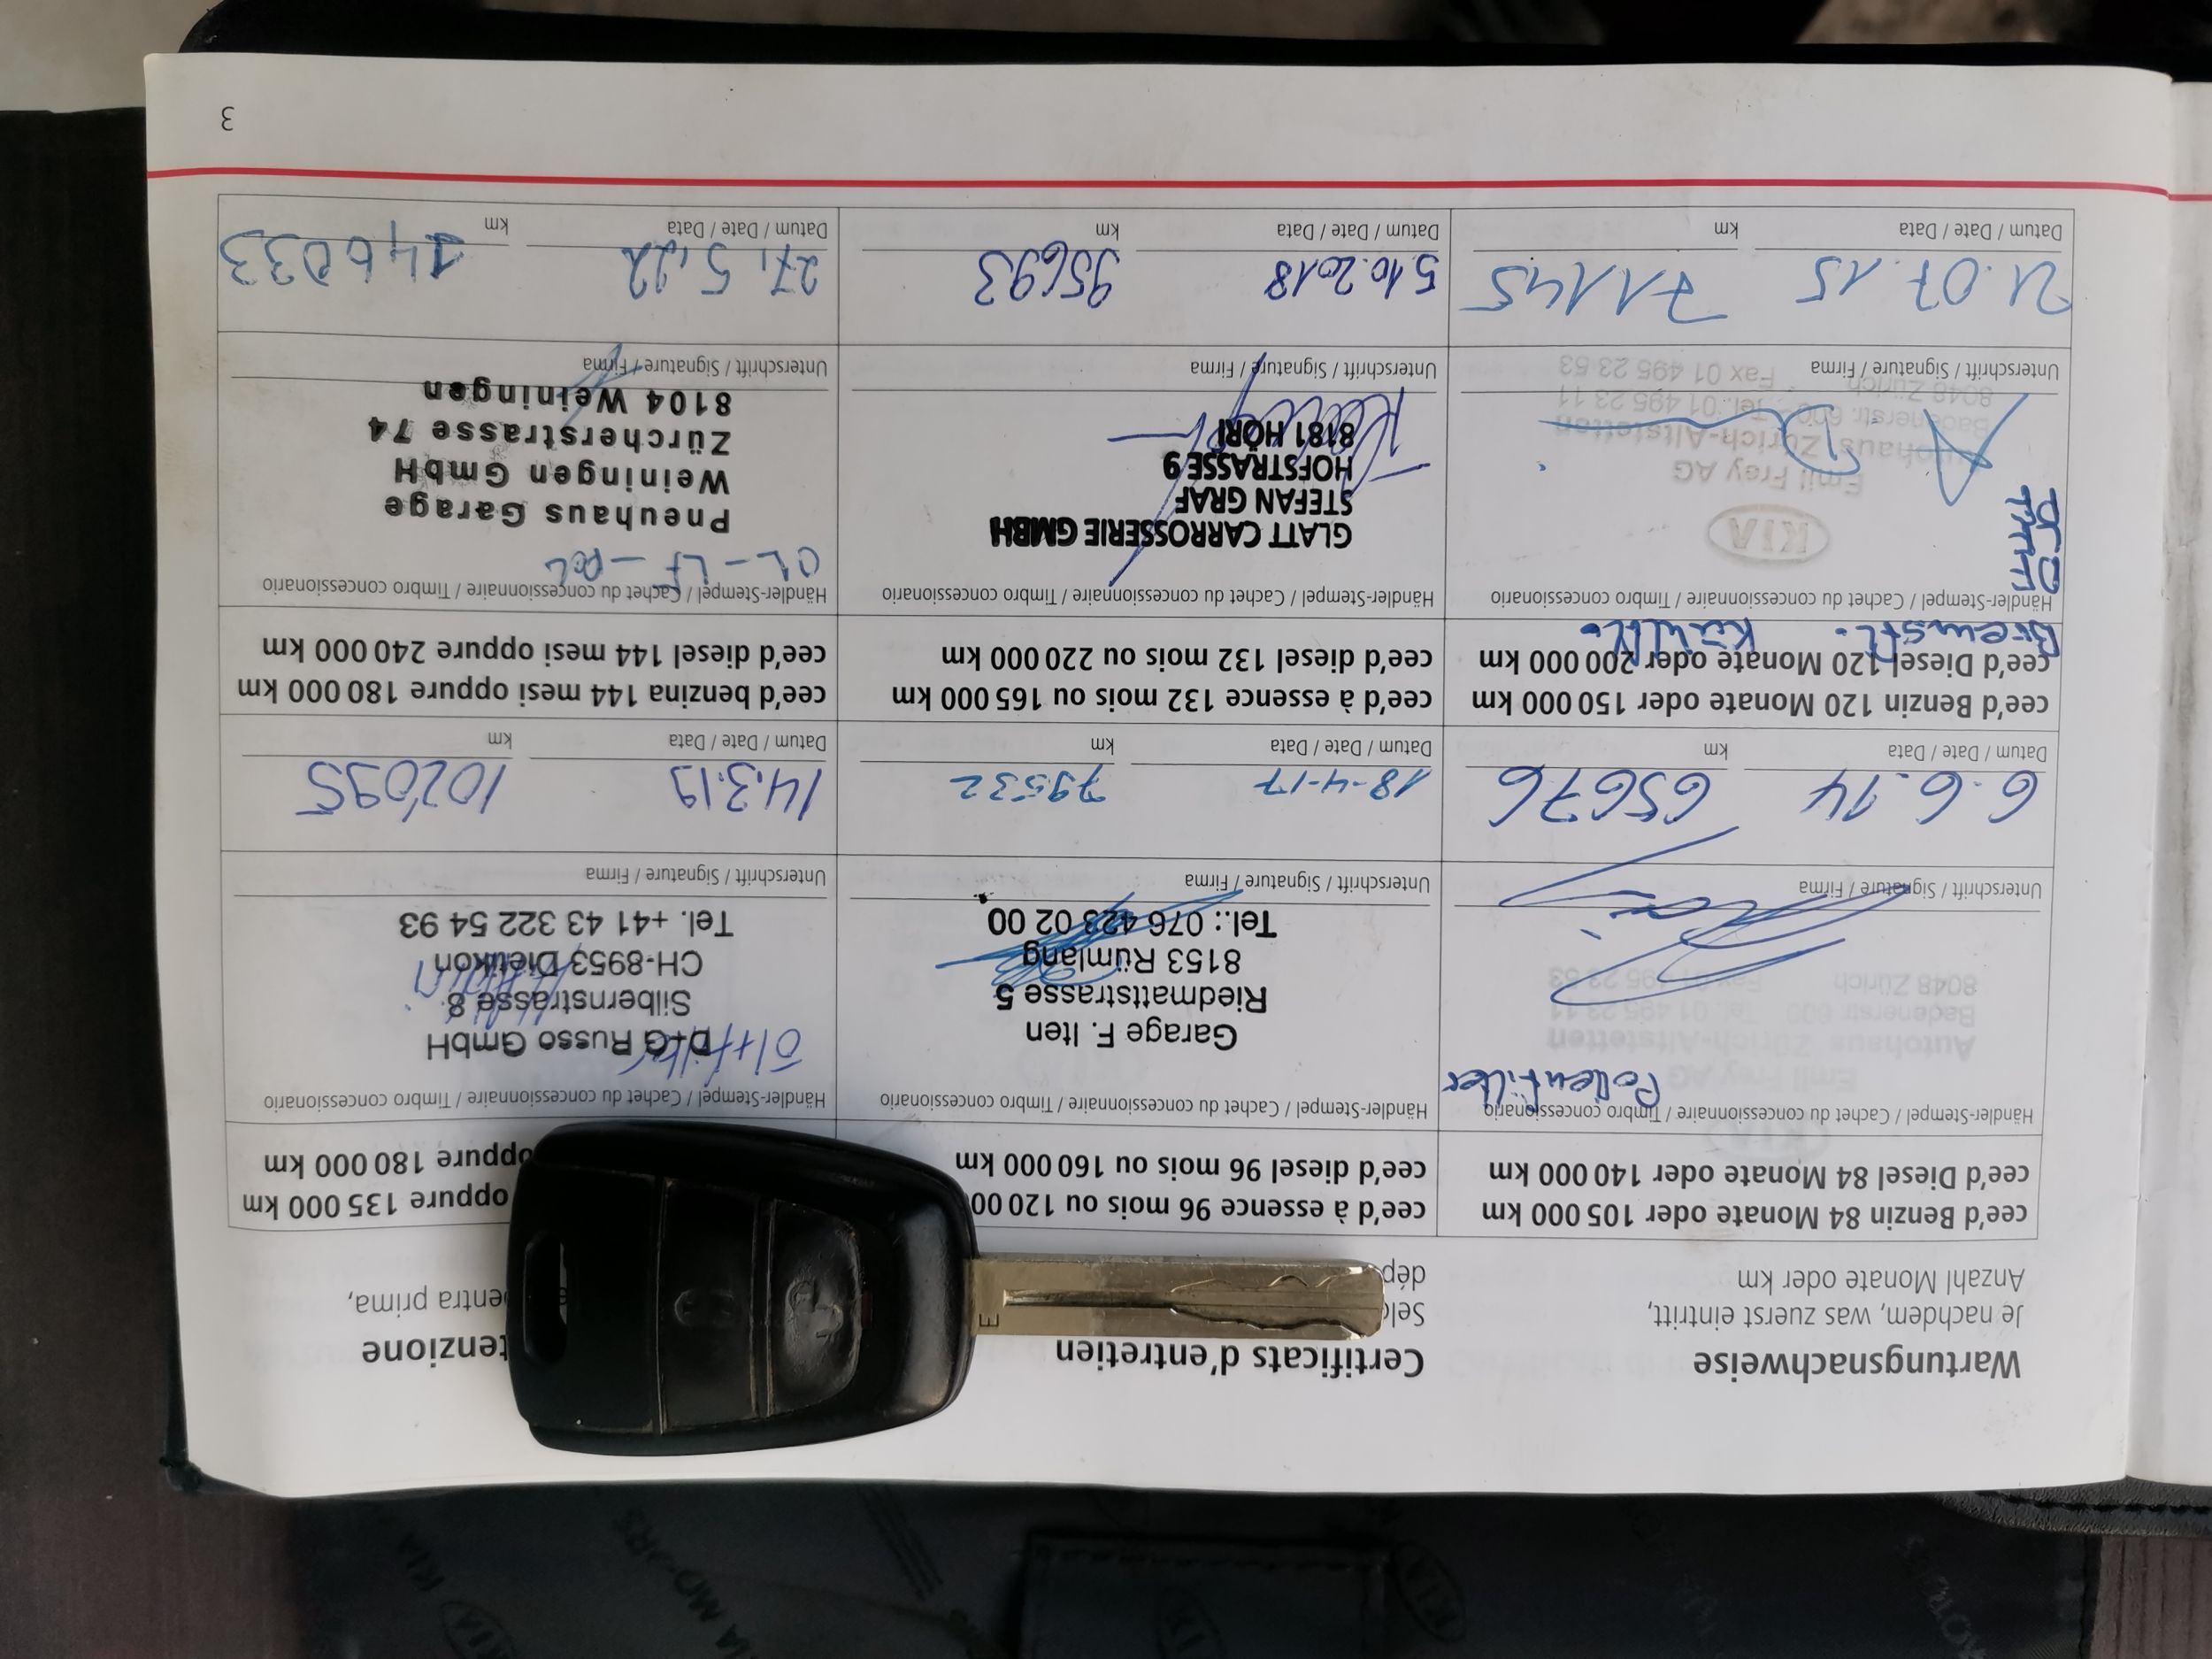 Wartungsnachweise
Je nachdem, was zuerst eintritt,
Anzahl Monate oder km
cee'd Benzin 84 Monate oder 105 000 km
cee'd Diesel 84 Monate oder 140 000 km
Händler-Stempel / Cachet du concessionnaire / Timbro concessionario
Pollenfilter
KIA
Emil Frey AG
Autohaus Zürich-Altstetten
Badenerstr. 600 Tel. 01 495 23 11
8048 Zürich Fax 01 495 23 53
Unterschrift / Signature / Firma
6.6.14 65676
Datum / Date / Data km
cee'd Benzin 120 Monate oder 150 000 km
cee'd Diesel 120 Monate oder 200 000 km
Bremsfl.
Händler-Stempel / Cachet du concessionnaire / Timbro concessionario
KIA
Emil Frey AG
Autohaus Zürich-Altstetten
Badenerstr. 600 - Tel. 01 495 23 11
8048 Zürich Fax 01 495 23 53
Unterschrift / Signature / Firma
21.07.15 71145
Datum / Date / Data km
Certificats d'entretien
Sel
dép
cee'd à essence 96 mois ou 120 00
cee'd diesel 96 mois ou 160 000 km
Händler-Stempel / Cachet du concessionnaire / Timbro concessionario
Garage F. Iten
Riedmattstrasse 5
8153 Rümlang
Tel.: 076 423 02 00
Unterschrift / Signature / Firma
18-4-17 79532
Datum / Date / Data km
cee'd à essence 132 mois ou 165 000 km
cee'd diesel 132 mois ou 220 000 km
Händler-Stempel / Cachet du concessionnaire / Timbro concessionario
GLATT CARROSSERIE GMBH
STEFAN GRAF
HOFSTRASSE 9
8181 HÖRI
Unterschrift / Signature / Firma
5.10.2018 95693
Datum / Date / Data km
tenzione
entra prima,
oppure 135 000 km
oppure 180 000 km
Händler-Stempel / Cachet du concessionnaire / Timbro concessionario
Öl+Filter
D+G Russo GmbH
Silbernstrasse 8
CH-8953 Dietikon
Tel. +41 43 322 54 93
Unterschrift / Signature / Firma
14.3.19 102095
Datum / Date / Data km
cee'd benzina 144 mesi oppure 180 000 km
cee'd diesel 144 mesi oppure 240 000 km
Händler-Stempel / Cachet du concessionnaire / Timbro concessionario
OL-LF-POL
Pneuhaus Garage
Weiningen GmbH
Zürcherstrasse 74
8104 Weiningen
Unterschrift / Signature / Firma
27.5.22 146033
Datum / Date / Data km
3
E
KIA
KIA MOTORS
KIA